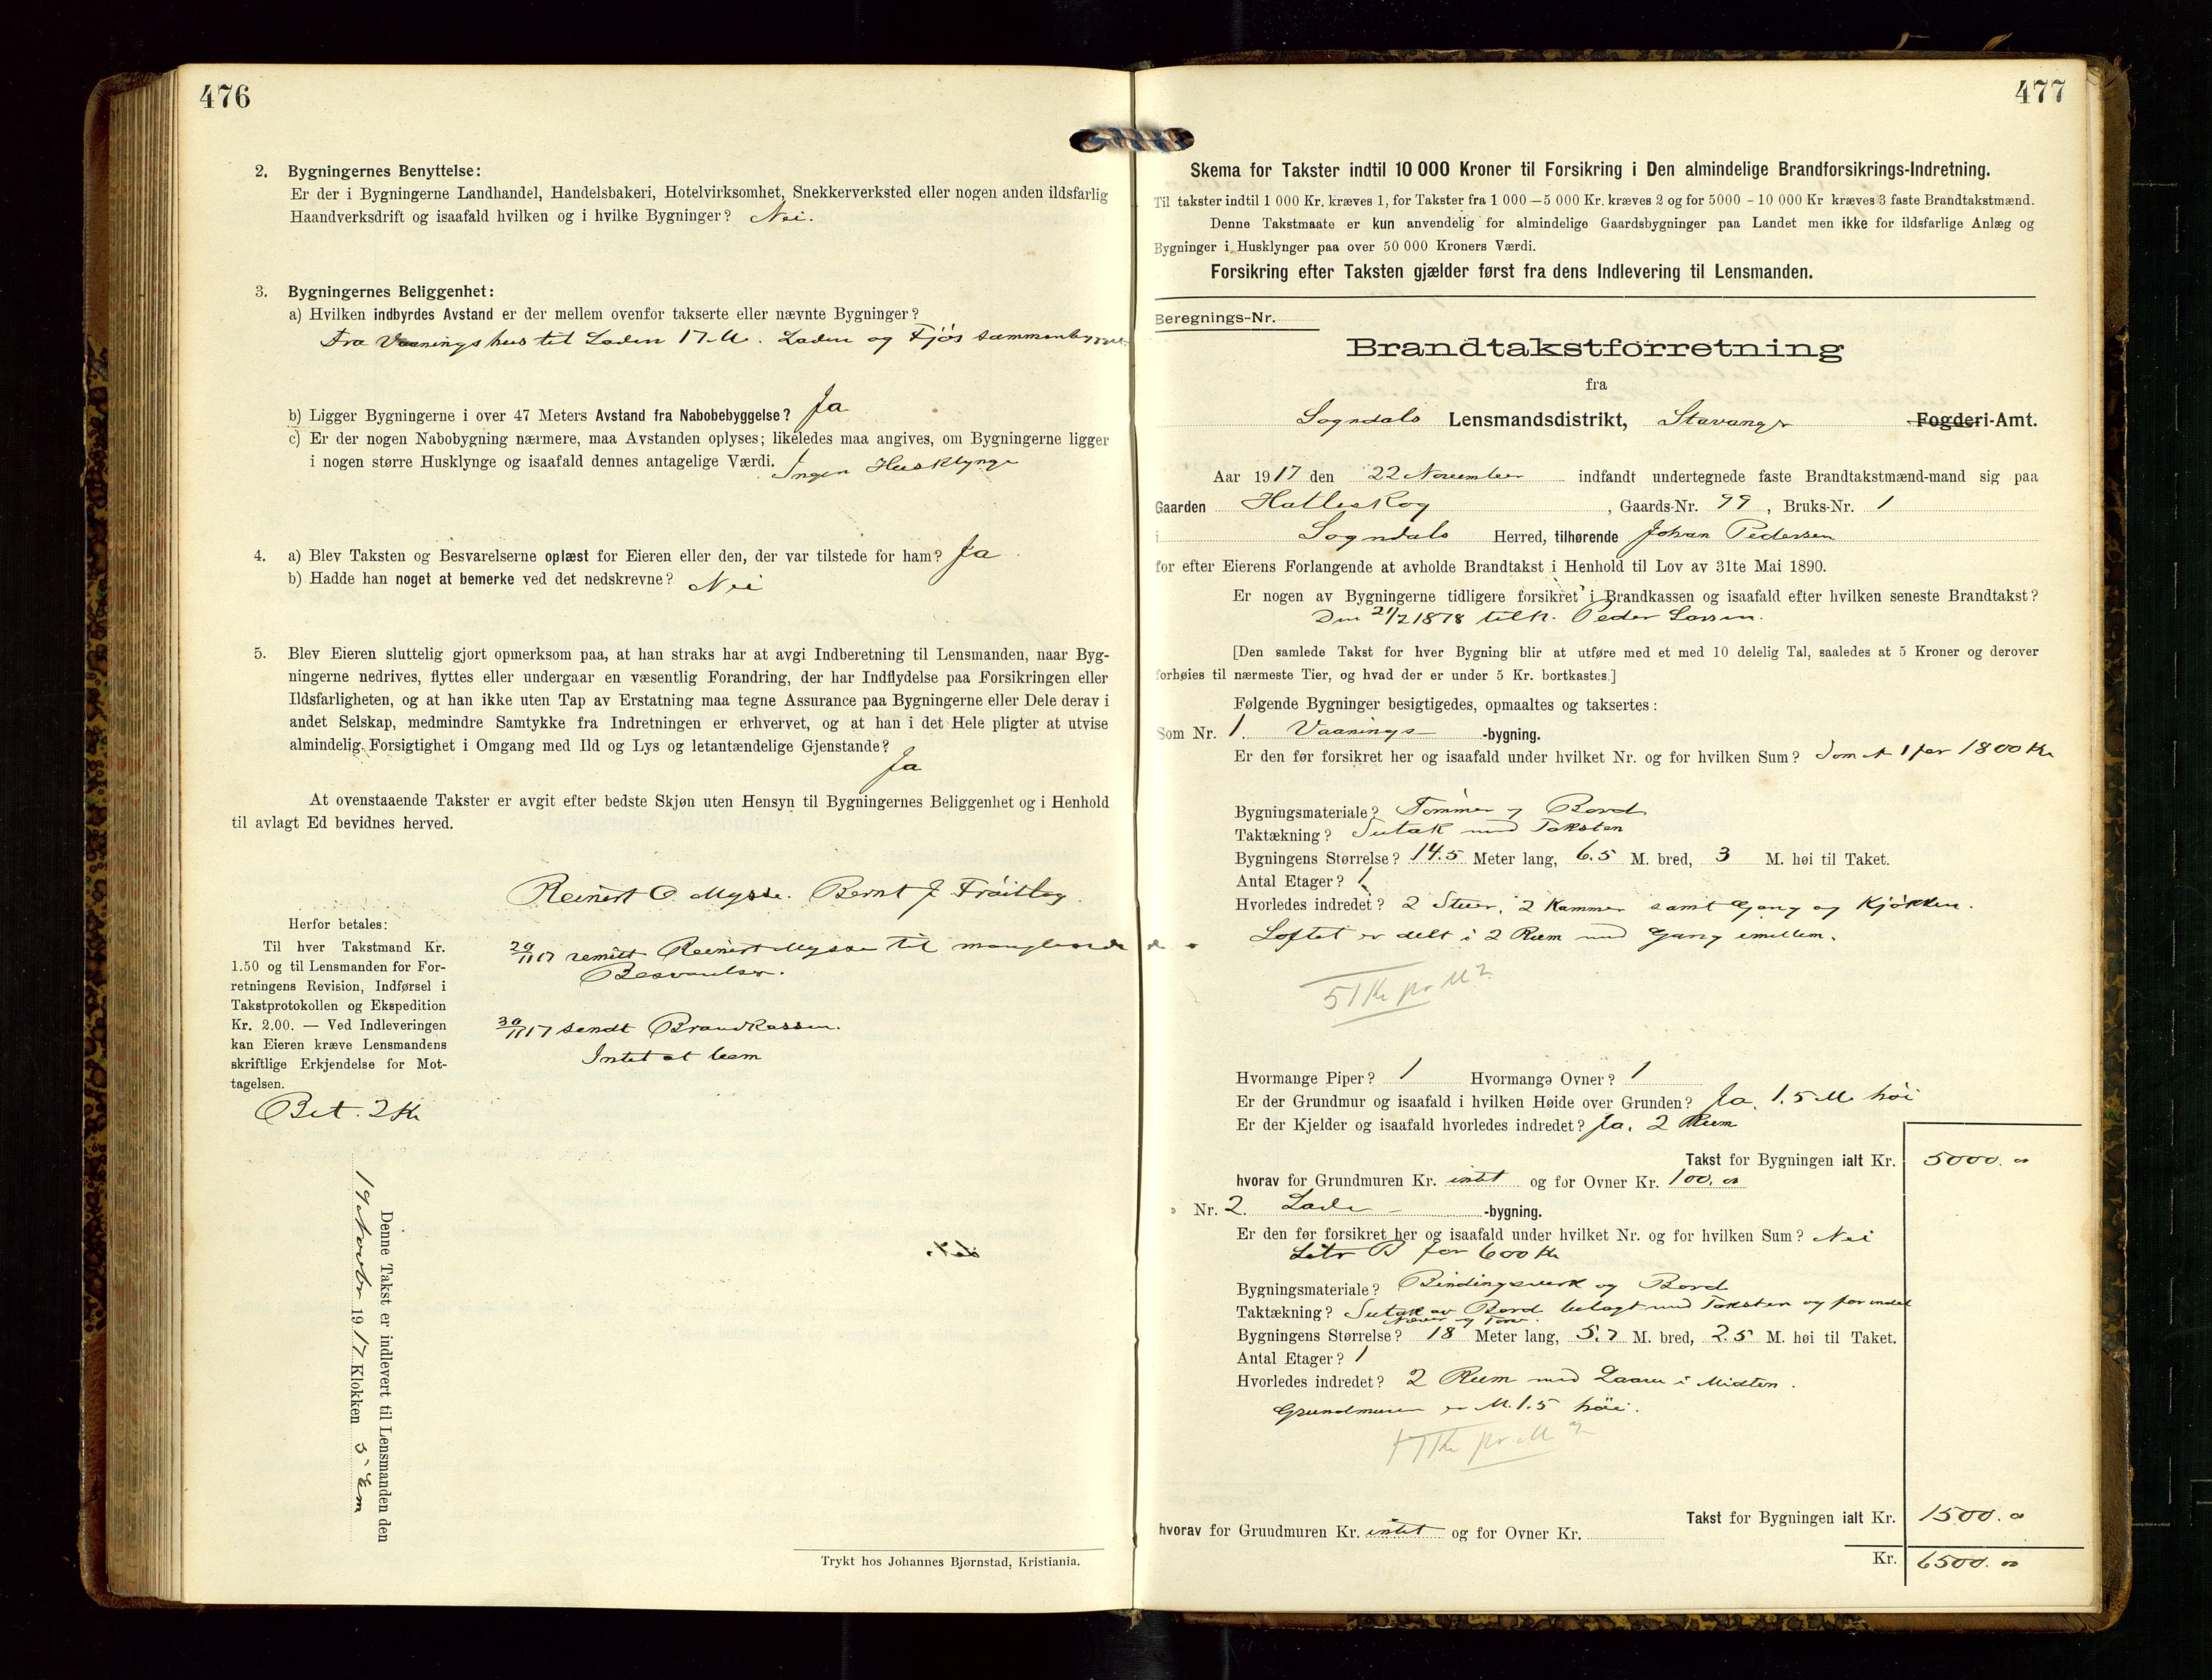 476
2. Bygningernes Benyttelse:
Er der i Bygningerne Landhandel, Handelsbakeri, Hotelvirksomhet, Snekkerverksted eller nogen anden ildsfarlig
Haandverksdrift og isaafald hvilken og i hvilke Bygninger? Nei.
3. Bygningernes Beliggenhet:
a) Hvilken indbyrdes Avstand er der mellem ovenfor takserte eller nævnte Bygninger?
Fra Vaaningshus til Laden 17 M. Laden og Fjös sammenbygget
b) Ligger Bygningerne i over 47 Meters Avstand fra Nabobebyggelse? Ja
c) Er der nogen Nabobygning nærmere, maa Avstanden oplyses; likeledes maa angives, om Bygningerne ligger
i nogen større Husklynge og isaafald dennes antagelige Værdi. Ingen Husklynge
4. a) Blev Taksten og Besvarelserne oplæst for Eieren eller den, der var tilstede for ham? Ja
b) Hadde han noget at bemerke ved det nedskrevne? Nei
5. Blev Eieren sluttelig gjort opmerksom paa, at han straks har at avgi Indberetning til Lensmanden, naar Byg-
ningerne nedrives, flyttes eller undergaar en væsentlig Forandring, der har Indflydelse paa Forsikringen eller
Ildsfarligheten, og at han ikke uten Tap av Erstatning maa tegne Assurance paa Bygningerne eller Dele derav i
andet Selskap, medmindre Samtykke fra Indretningen er erhvervet, og at han i det Hele pligter at utvise
almindelig Forsigtighet i Omgang med Ild og Lys og letantændelige Gjenstande?
Ja
At ovenstaaende Takster er avgit efter bedste Skjøn uten Hensyn til Bygningernes Beliggenhet og i Henhold
til avlagt Ed bevidnes herved.
Reinert O. Mysse. Bernt J
Herfor betales:
Til hver Takstmand Kr.
1.50 og til Lensmanden for For-
retningens Revision, Indførsel i
Takstprotokollen og Ekspedition
Kr. 2.00. — Ved Indleveringen
kan Eieren kræve Lensmandens
skriftlige Erkjendelse for Mot-
tagelsen.
Bet. 2 Kr
remitt Reinert Mysse til manglende
Besvarelser.
30/11 17 sendt Brandkassen.
Intet at bem
Denne Takst er indlevert til Lensmanden den
1917 Klokken 5 Em
Trykt hos Johannes Bjørnstad, Kristiania.
477
Skema for Takster indtil 10 000 Kroner til Forsikring i Den almindelige Brandforsikrings-Indretning.
Til takster indtil 1 000 Kr. kræves 1, for Takster fra 1 000 — 5 000 Kr. kræves 2 og for 5000 - 10 000 Kr kræves 3 faste Brandtakstmænd.
Denne Takstmaate er kun anvendelig for almindelige Gaardsbygninger paa Landet men ikke for ildsfarlige Anlæg og
Bygninger i Husklynger paa over 50 000 Kroners Værdi.
Forsikring efter Taksten gjælder først fra dens Indlevering til Lensmanden.
Beregnings-Nr.
Brandtakstforretning
fra
Sogndals Lensmandsdistrikt, Stavanger Fogderi-Amt.
Aar 1917 den 22 November indfandt undertegnede faste Brandtakstmænd-mand sig paa
Gaarden Halleskog, Gaards-Nr. 99, Bruks-Nr. 1
i Sogndals Herred, tilhørende Johan Pedersen
for efter Eierens Forlangende at avholde Brandtakst i Henhold til Lov av 31te Mai 1890.
Er nogen av Bygningerne tidligere forsikret i Brandkassen og isaafald efter hvilken seneste Brandtakst?
Den 21/2 1878 tilh. Peder Larsen.
[Den samlede Takst for hver Bygning blir at utføre med et med 10 delelig Tal, saaledes at 5 Kroner og derover
forhøies til nærmeste Tier, og hvad der er under 5 Kr. bortkastes.]
Følgende Bygninger besigtigedes, opmaaltes og taksertes:
Som Nr. 1. Vaanings -bygning.
Er den før forsikret her og isaafald under hvilket Nr. og for hvilken Sum? Som 1 for 1800 Kr
Bygningsmateriale? Tømmer og Bord
Taktækning? Sutak med Taksten
Bygningens Størrelse? 14.5 Meter lang, 6.5 M. bred, 3 M. høi til Taket.
Antal Etager? 1
Hvorledes indredet? 2 Stuer, 2 Kammer samt Gang og Kjøkken.
Loftet er delt i 2 Rum med Gang imellem.
51 Kr pr M²
Hvormange Piper? 1 Hvormange Ovner? 1
Er der Grundmur og isaafald i hvilken Høide over Grunden? Ja, 1.5 M. höi
Er der Kjelder og isaafald hvorledes indredet? Ja, 2 Rum
Takst for Bygningen ialt Kr. 5000.00
hvorav for Grundmuren Kr. intet og for Ovner Kr. 100.00
» Nr. 2. Lade -bygning.
Er den før forsikret her og isaafald under hvilket Nr. og for hvilken Sum? Nei
Litr B for 600 Kr
Bygningsmateriale? Bindingsverk og Bord
Taktækning? Sutak av Bord belagt med Taksten og for endel
Næver og Torv.
Bygningens Størrelse? 18 Meter lang, 5.7 M. bred, 2.5 M. høi til Taket.
Antal Etager? 1
Hvorledes indredet? 2 Rum med Laave i Midten.
Grundmuren er M. 1.5 höi.
Kr pr M²
Takst for Bygningen ialt Kr. 1500.00
hvorav for Grundmuren Kr. intet og for Ovner Kr.
Kr. 6500.00